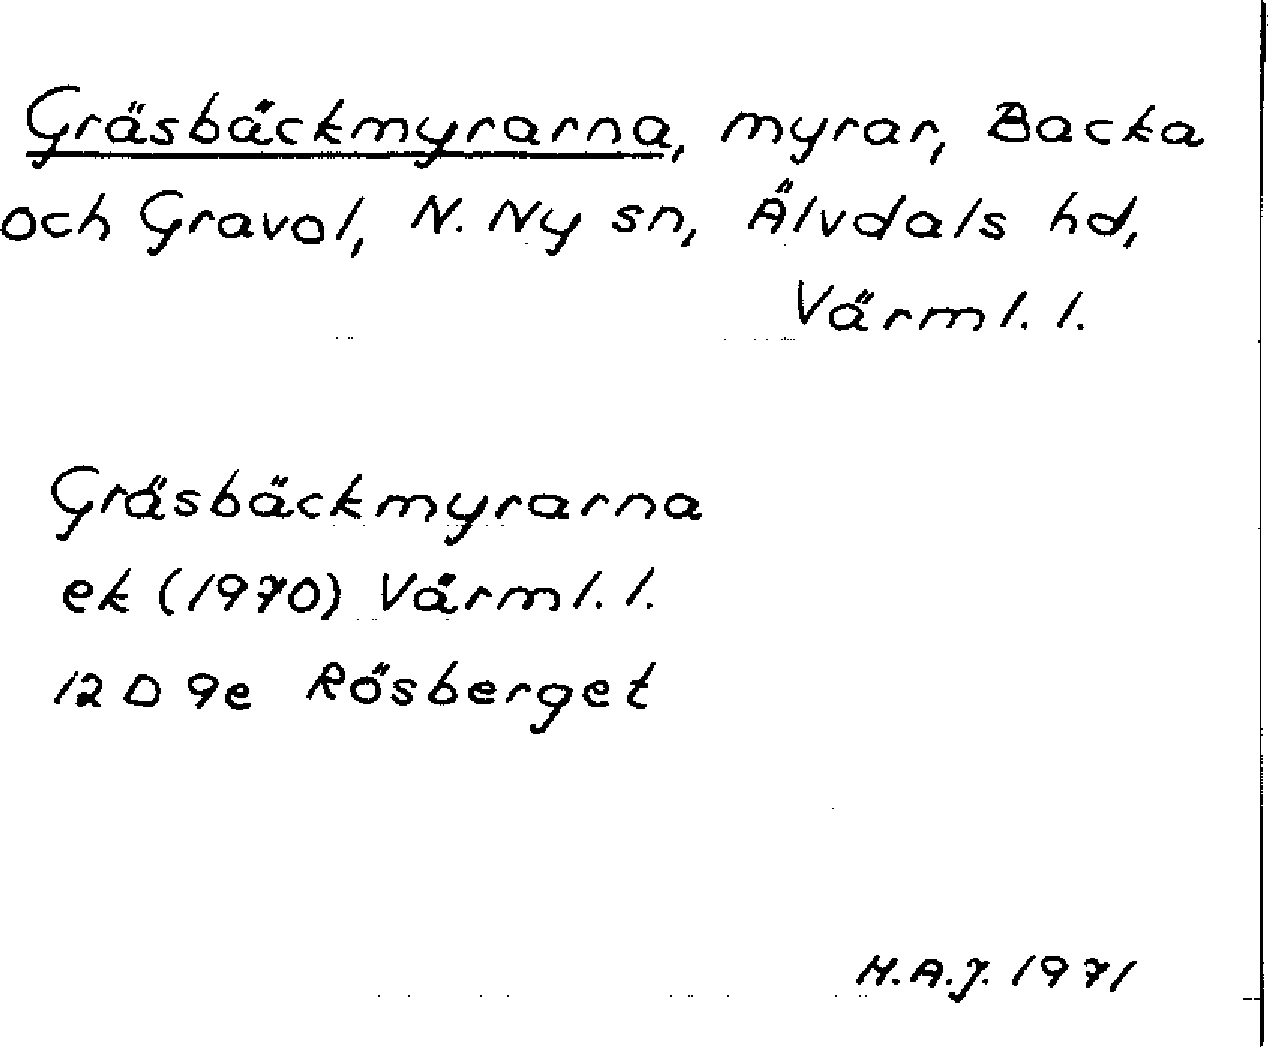 Gräsbäckmyrarna, myrar, Backa
och Gravol, N. Ny sn, Älvdals hd,
Värml. l.
Gräsbäckmyrarna
ek (1970) Värml. l.
12 D 9e Rösberget
H.A.J. 1971